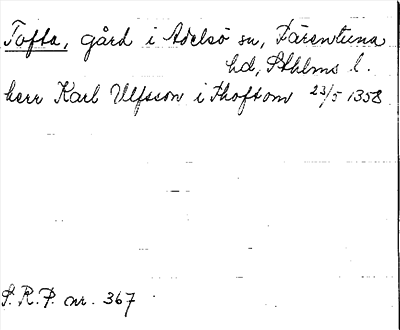 Tofta, gård i Adelsö sn, Färentuna
hd, Sthlms l.
herr Karl Ulfsson i Thoftom 23/5 1358
S. R. P. nr. 367